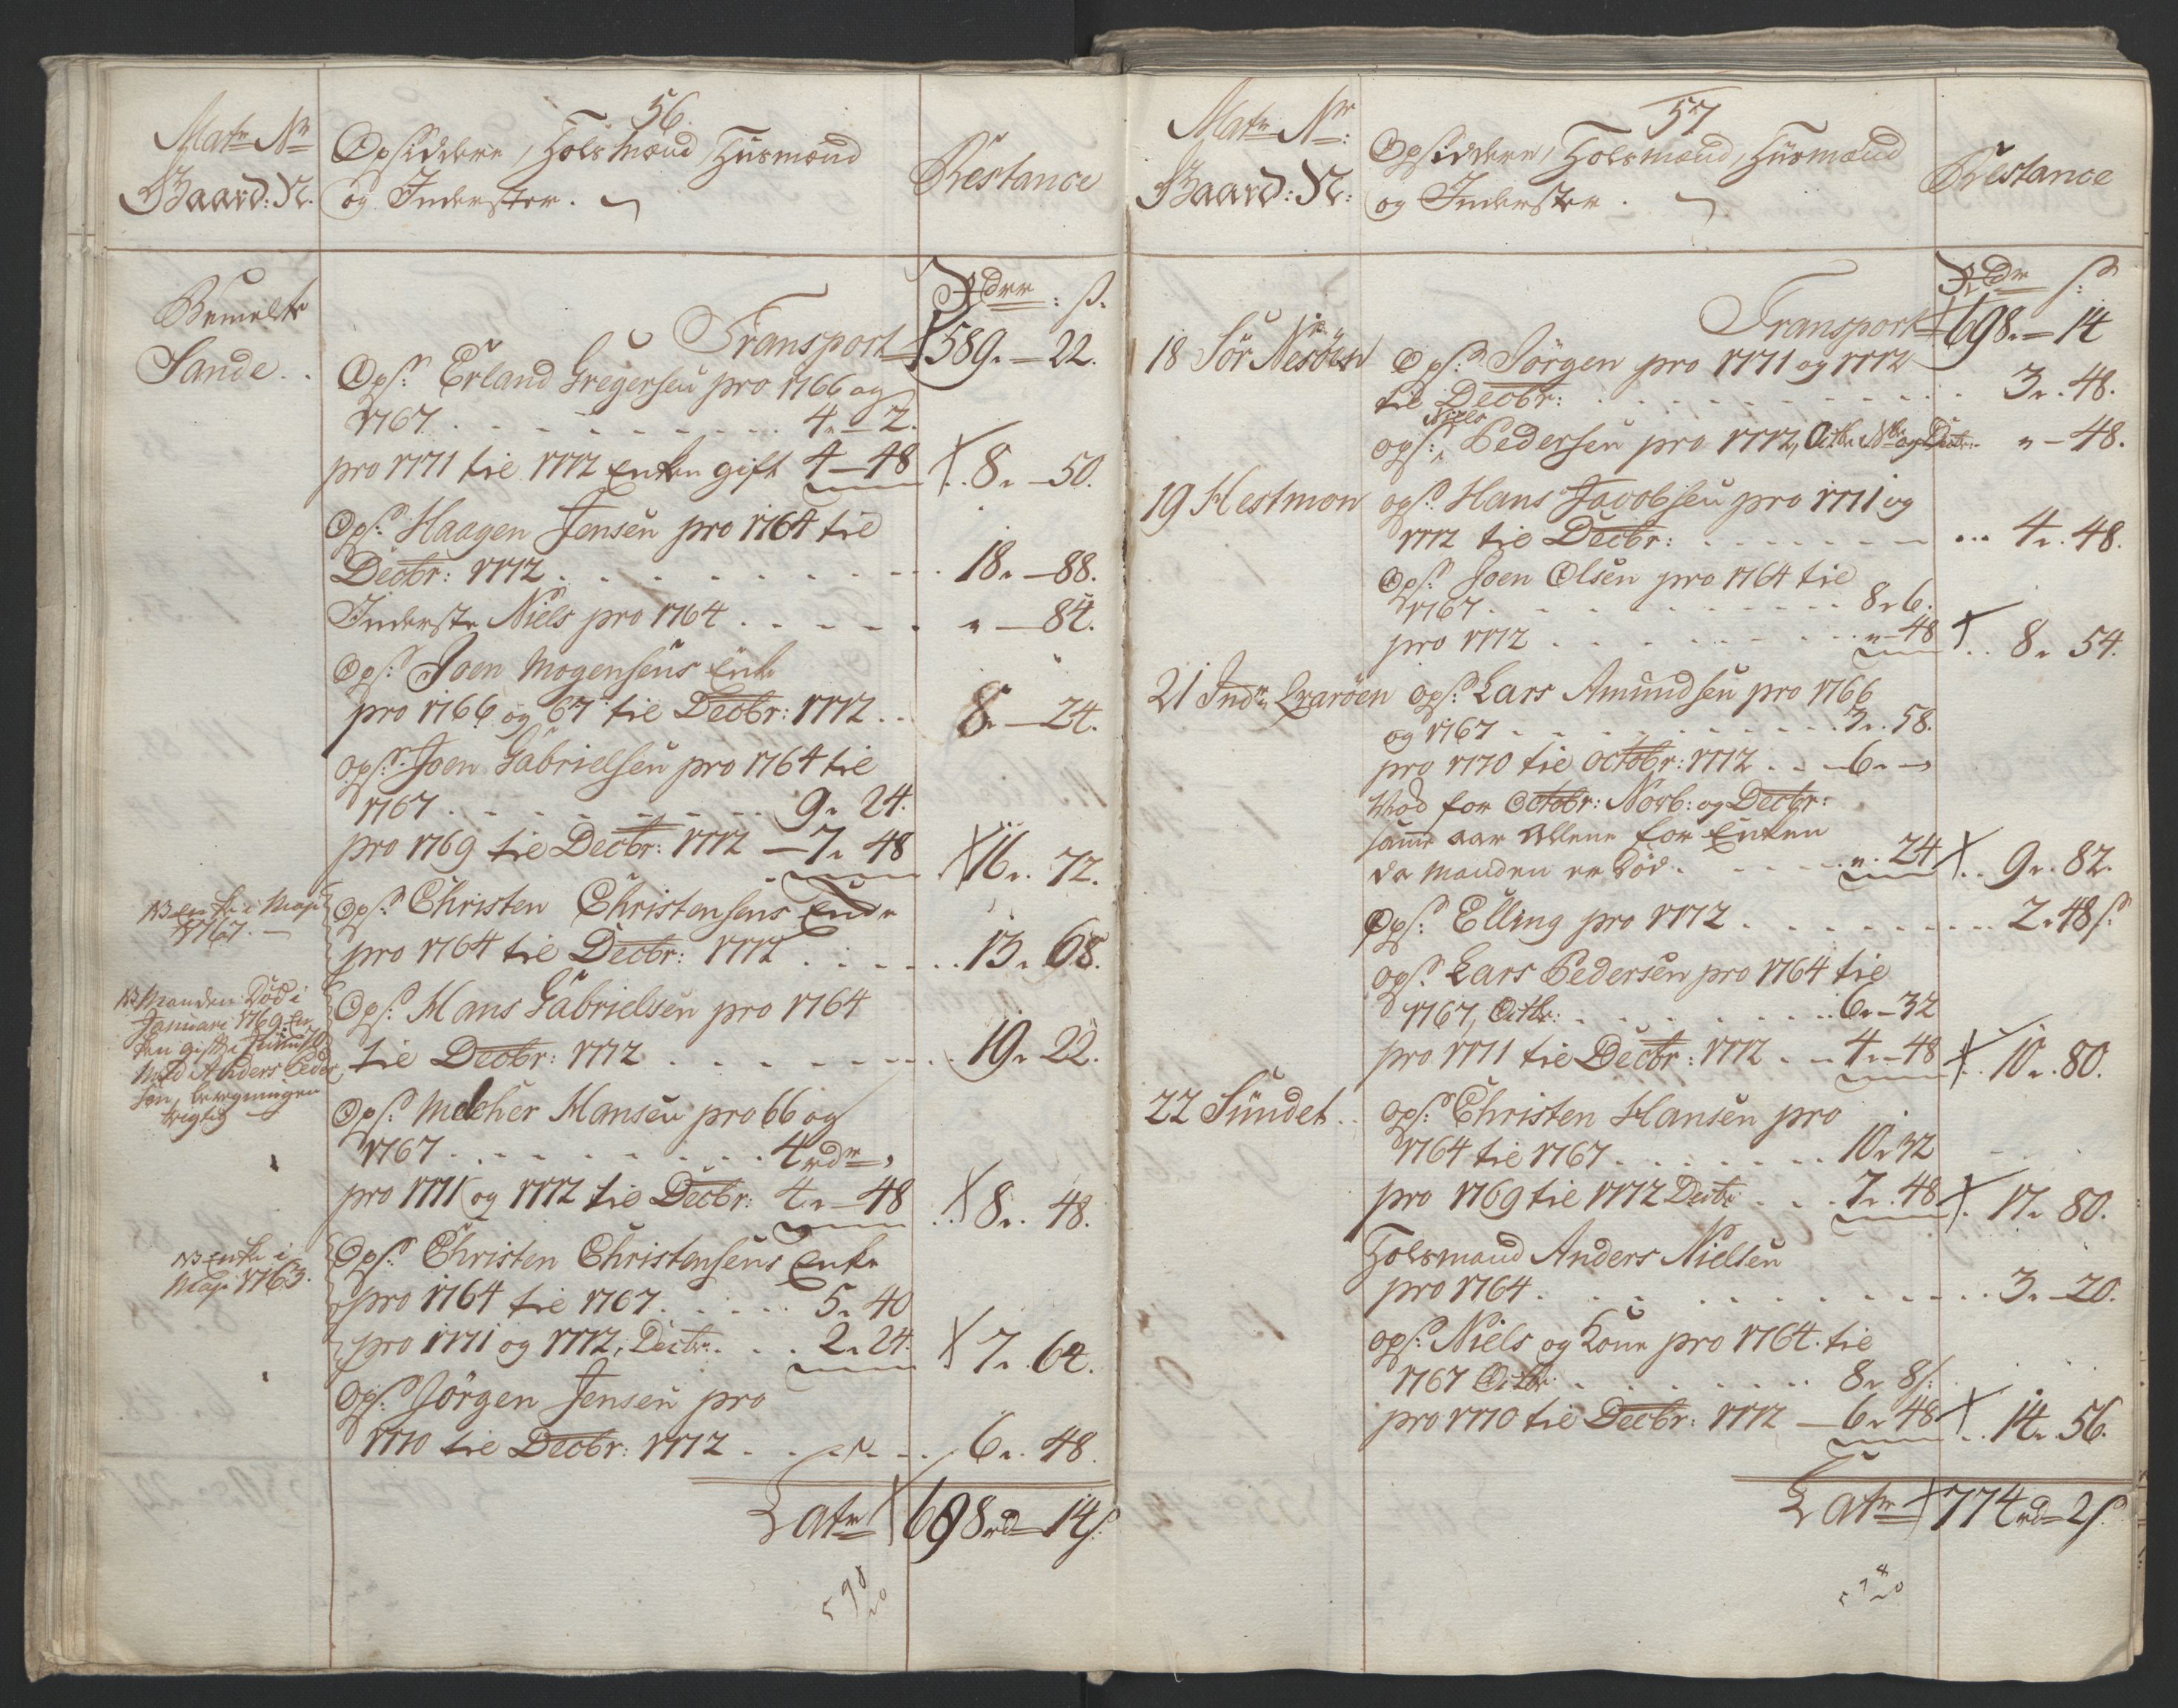 56.
Matr Nr
Gaard: N.
Opsiddere, Holsmænd, Husmænd
og Inderster.
Restance
Rdr : s.
Bemeldte
Sande. .
Transport 589. — 22.
Ops: Erland Gregersen pro 1766 og
1767 . . . . . . . . 4. — 2.
pro 1771 til 1772 Enken gift 4 — 48 8. — 50.
Ops: Haagen Jensen pro 1764 til
Decbr: 1772 . . . . . . . . 18. — 88.
Inderste Niels pro 1764 . . . . . " — 84.
Ops: Joen Mogensens Enke
pro 1766 og 67 til Decbr: 1772 . . 8. — 24.
ops: Joen Gabrielsen pro 1764 til
1767 . . . . . . . . 9. 24.
pro 1769 til Decbr: 1772 — 7. 48 16. 72.
NB Enke i Maji
1767. —
Ops: Christen Christensens Enke
pro 1764 til Decbr: 1772 . . . . . 13. 68.
NB Manden Död i
Januari 1769. En-
ken gift i
Med Anders Peder
sen, beregningen
rigtig
Ops: Hans Gabrielsen pro 1764
til Decbr: 1772 . . . . . . . 19. 22.
Ops: Melcher Hansen pro 66 og
1767 . . . . . . . . 4 rdr,
pro 1771 og 1772 til Decbr: 4. — 48 8. 48.
NB Enke i
Maji 1763.
Ops: Christen Christensens Enke
pro 1764 til 1767 . . . . . 5. 40
pro 1771 og 1772, Decbr. . . . 2. 24. 7. 64.
Ops: Jörgen Jensen pro
1770 til Decbr: 1772 . . . . . 6. 48.
Latr 698 rd 14 s:
57
Matr Nr:
Gaard: N:
Opsiddere, Holsmænd, Husmænd
og Inderster.
Restance
Rdr s:
Transport 698. — 14
18 Sör Nesöen
Ops: Jörgen pro 1771 og 1772
til Decbr: . . . . . . . . . 3. 48.
Niels
ops: Pedersen pro 1772, Octbr. Nbr. og Decbr. " — 48.
19 Hestmon
ops: Hans Jacobsen pro 1771 og
1772 til Decbr: . . . . . . . . . . 4. 48.
Ops: Joen Olsen pro 1764 til
1767 . . . . . . . . . 8. 6.
pro 1772 . . . . . . . . " — 48 8. 54.
21 Indr Qvaröen
ops: Lars Amundsen pro 1766
og 1767 . . . . . . . . . 3. 58.
pro 1770 til octobr: 1772 . . — 6. —,
Mod for Octobr: Novb: og Decbr:
samme aar Allene for Enken
da Manden er död. . . . . . ". 24 9. 82.
Ops: Elling pro 1772 . . . . . . . . . 2. 48 s.
ops: Lars Pedersen pro 1764 til
1767, Octbr: . . . . . . . . 6. — 32
pro 1771 til Decbr: 1772 . . . 4. — 48 10. 80.
22 Sundet. .
ops: Christen Hansen pro
1764 til 1767 . . . . . . . 10. 32
pro 1769 til 1772 Decbr . . . 7. 48 17. 80.
Holsmand Anders Nielsen
pro 1764 . . . . . . . . . . . . 3. — 20.
ops: Niels og Kone pro 1764 til
1767 Octbr. . . . . . . . . 8. 8 s:
pro 1770 til Decbr: 1772 — 6. 48 14. 56.
Latr 774 rd 2 s.